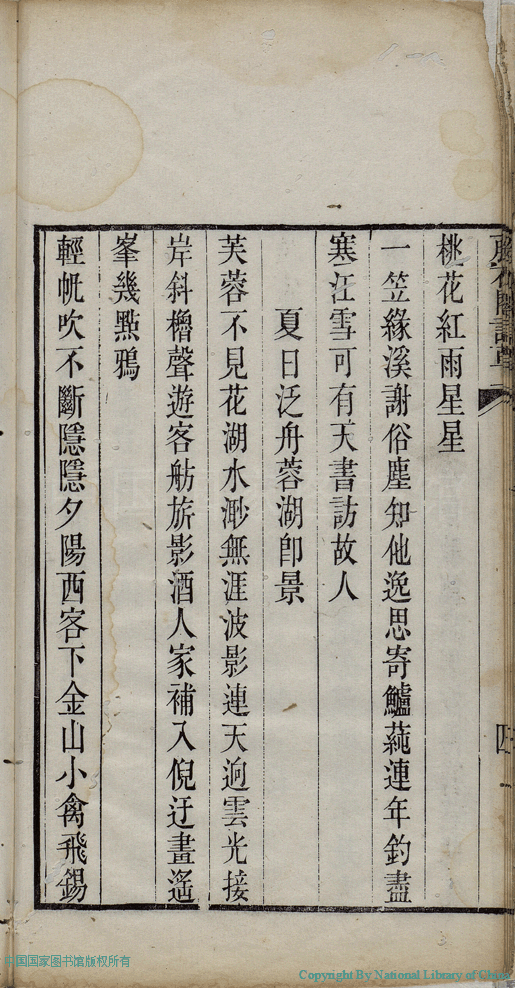 桃花紅雨星星
一笠緣溪謝俗塵知他逸思寄鱸蒓連年釣盡
寒江雪可有天書訪故人
夏日泛舟蓉湖卽景
芙蓉不見花湖水渺無涯波影連天逈雲光接
岸斜櫓聲遊客舫旂影酒人家補入倪迂畫遙
峯幾㸃鴉
輕帆吹不斷隱隱夕陽西客下金山小禽飛錫
四
中国国家图书馆版权所有
Copyright By National Library of China